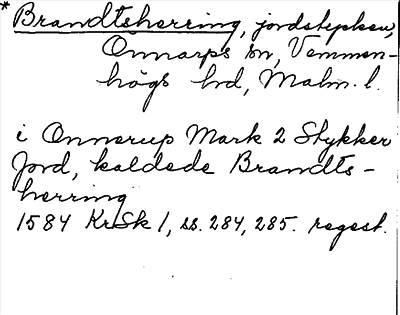 *Brandtsherring, jordstycken,
Önnarps sn, Vemmen-
högs hd, Malm. l.
i Onnerup Mark 2 Stykker
Jord, kaldede Brandts-
herring
1584 KrSk 1, ss. 284, 285. regest.